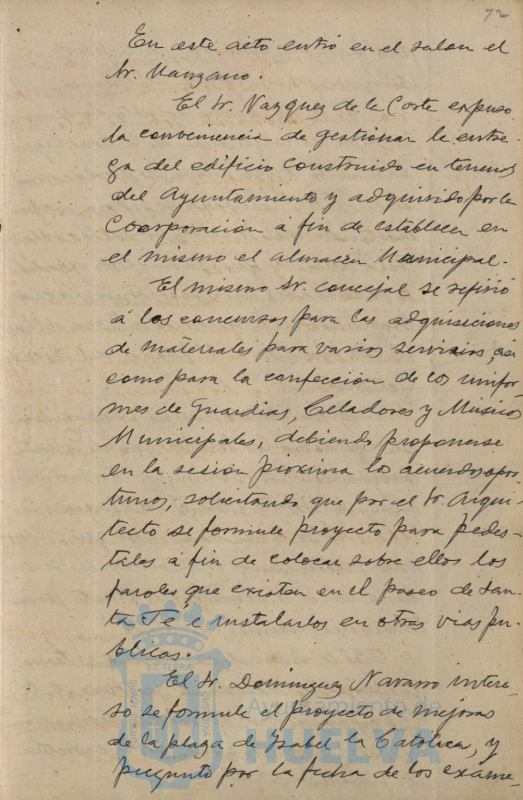 72
En este acto entró en el salon el
Sr. Manzano.
El Sr. Vazquez de la Corte expuso
la conveniencia de gestionar la entre-
ga del edificio construido en terrenos
del Ayuntamiento y adquirido por la
Coorporación á fin de establecer en
el mismo el almacén Municipal.
El mismo Sr. concejal se refirió
á los concursos para las adquisiciones
de materiales para varios servicios, asi
como para la confección de los unifor-
mes de Guardias, Celadores y Músicos
Municipales, debiendo proponerse
en la sesión próxima los acuerdos opor-
tunos, solicitando que por el Sr. Arqui-
tecto se formule proyecto para pedes-
tales á fin de colocar sobre ellos los
faroles que existen en el paseo de San-
ta Fé é instalarlos en otras vias pú-
blicas.
El Sr. Dominguez Navarro intere-
só se formule el proyecto de mejoras
de la plaza de Isabel la Católica, y
preguntó por la fecha de los exame-
Ayuntamiento de
HUELVA